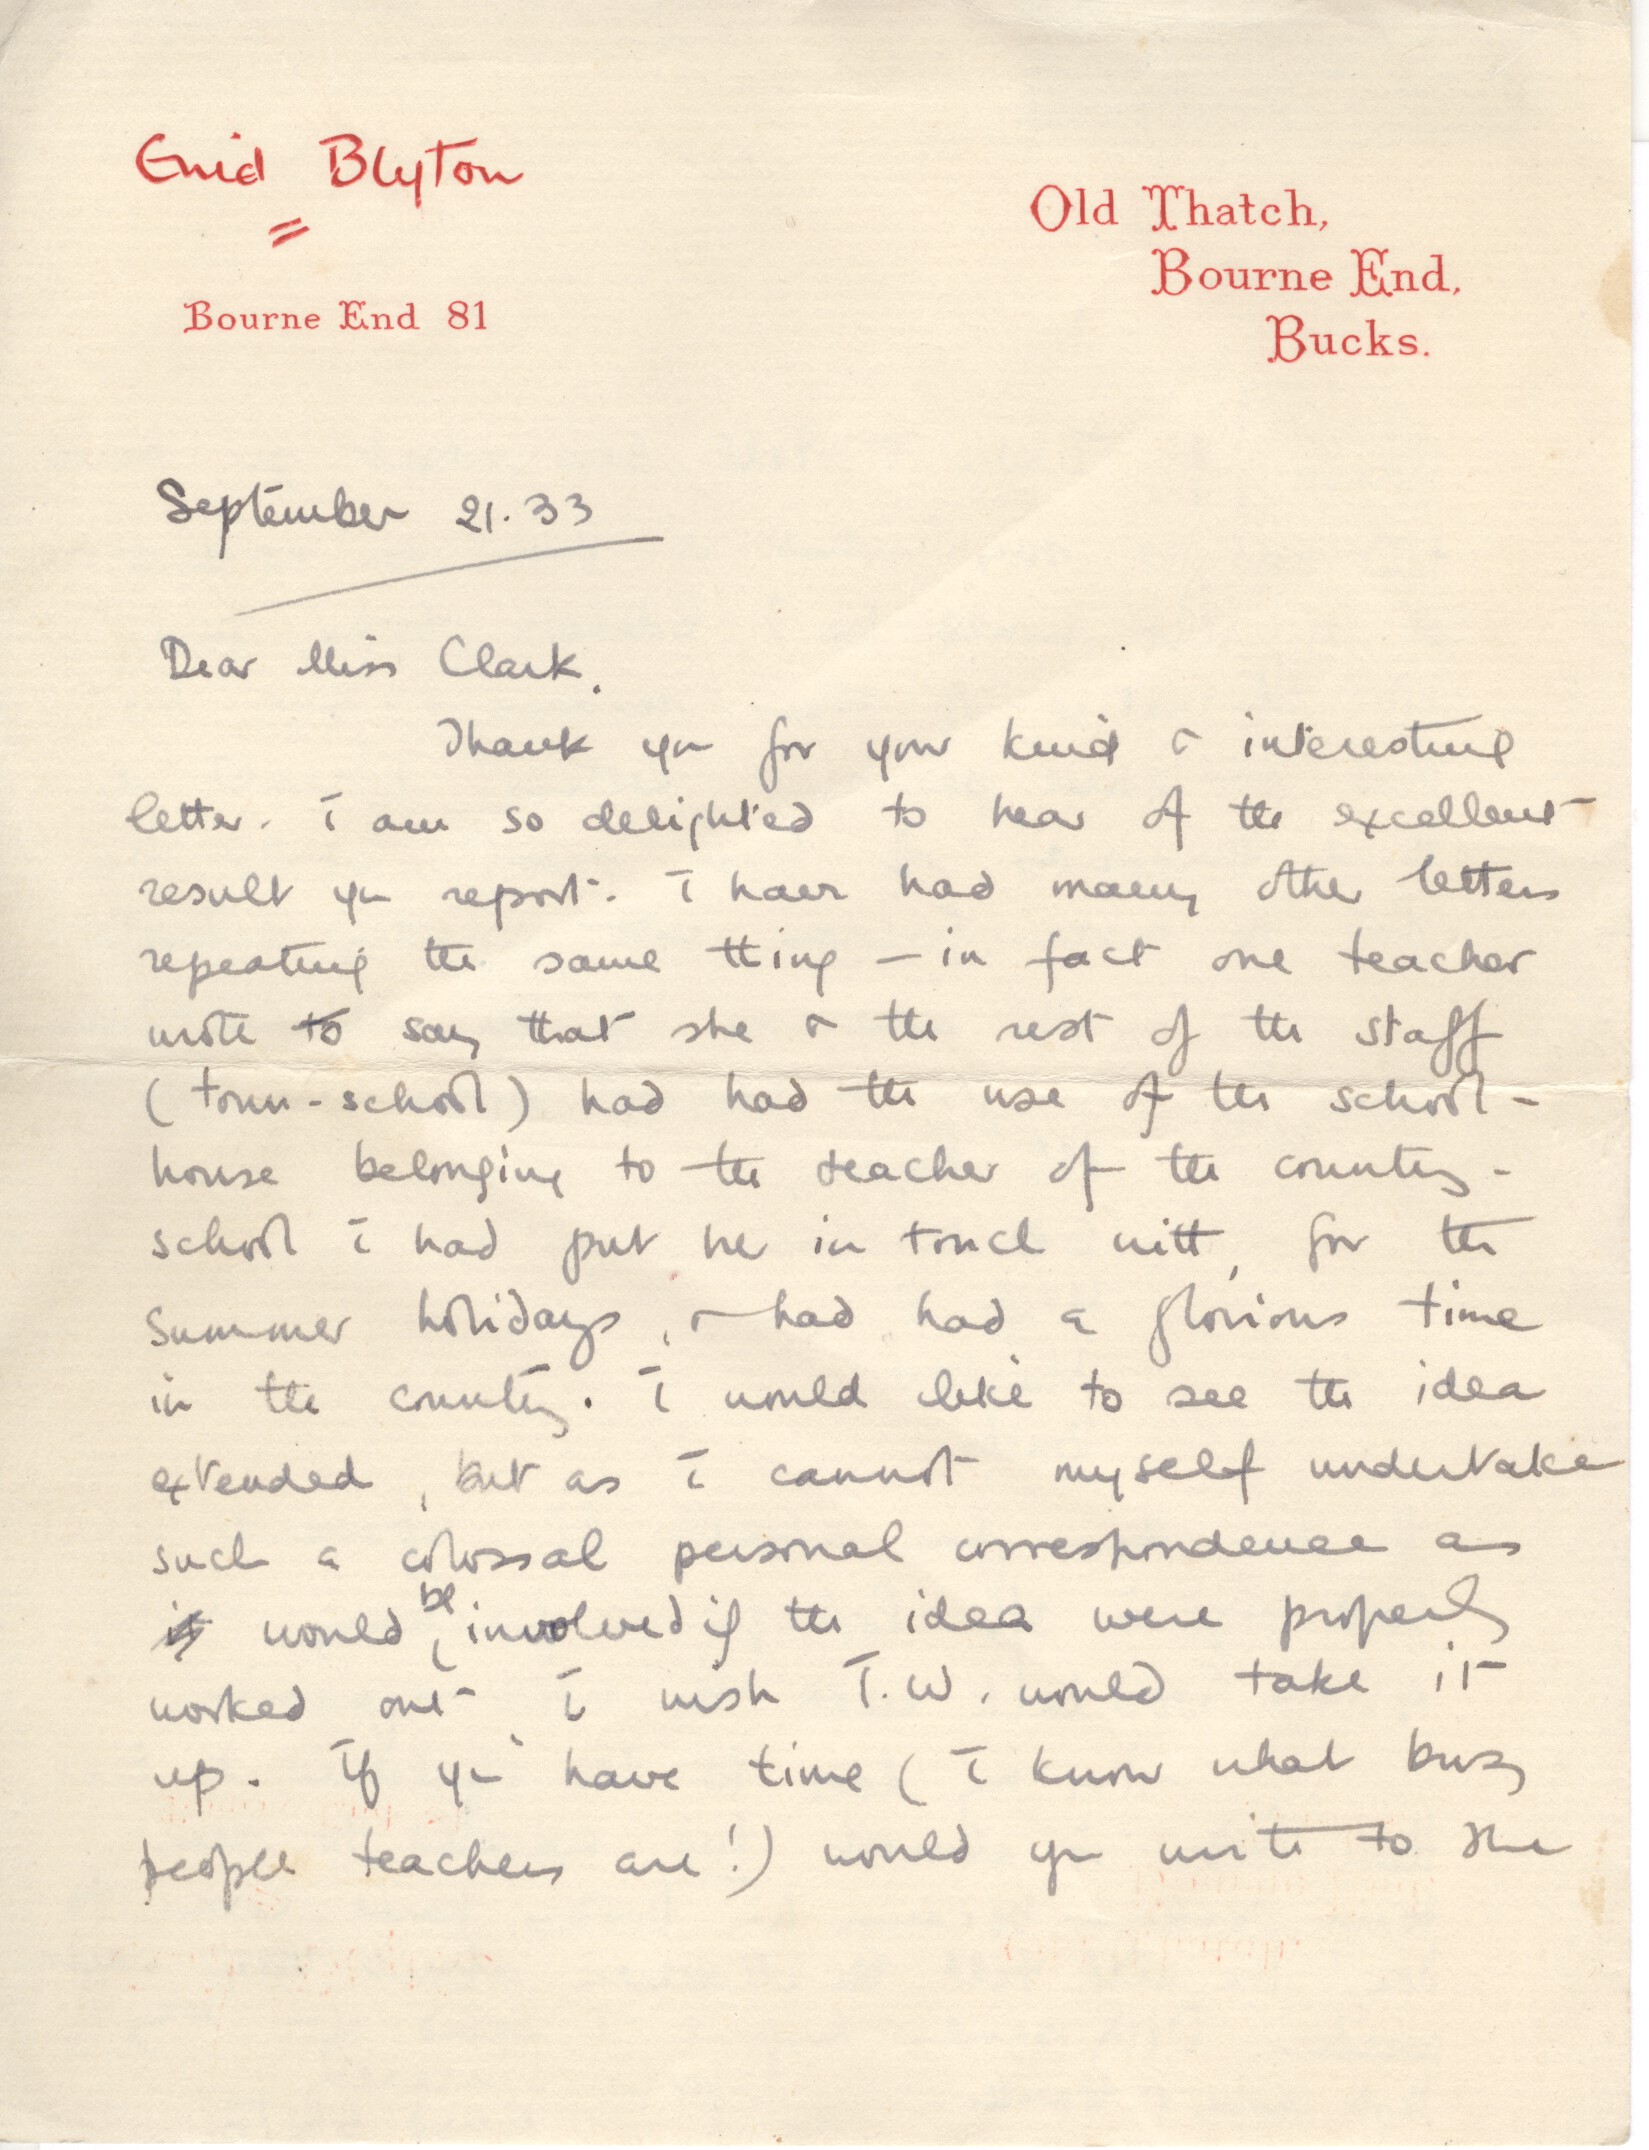 Enid Blyton
Bourne End 81
Old Thatch,
Bourne End,
Bucks.
September 21. 33
Dear Miss Clark,
Thank you for your kind & interesting
letter. I am so delighted to hear of the excellent
result you report. I have had many other letters
repeating the same thing – in fact one teacher
wrote to say that she & the rest of the staff
(town-school) had had the use of the school-
house belonging to the teacher of the country-
school I had put her in touch with, for the
summer holidays, & had had a glorious time
in the country. I would like to see the idea
extended, but as I cannot myself undertake
such a colossal personal correspondence as
it would be involved if the idea were properly
worked out I wish T.W. would take it
up. If you have time (I know what busy
people teachers are!) would you write to the